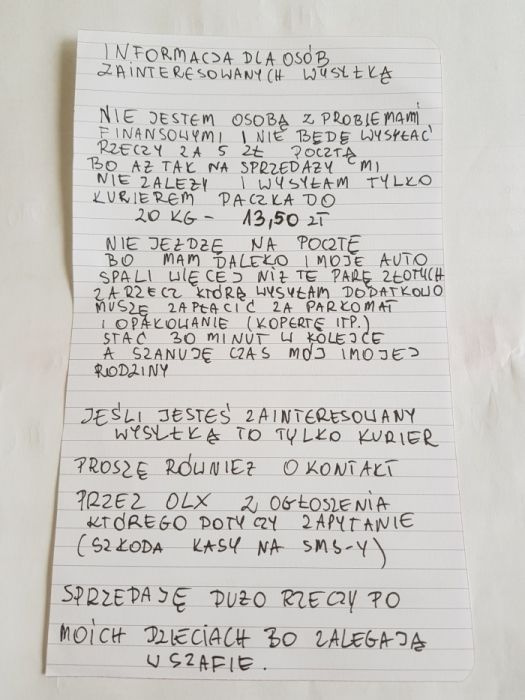 INFORMACJA DLA OSÓB
ZAINTERESOWANYCH WYSYŁKĄ
NIE JESTEM OSOBĄ Z PROBLEMAMI
FINANSOWYMI I NIE BĘDĘ WYSYŁAĆ
RZECZY ZA 5 ZŁ POCZTĄ
BO AŻ TAK NA SPRZEDAŻY MI
NIE ZALEŻY I WYSYŁAM TYLKO
KURIEREM PACZKA DO
20 KG - 13,50 ZŁ
NIE JEŻDŻĘ NA POCZTĘ
BO MAM DALEKO I MOJE AUTO
SPALI WIĘCEJ NIŻ TE PARĘ ZŁOTYCH
ZA RZECZ KTÓRĄ WYSYŁAM DODATKOWO
MUSZĘ ZAPŁACIĆ ZA PARKOMAT
I OPAKOWANIE (KOPERTĘ ITP.)
STAĆ 30 MINUT W KOLEJCE
A SZANUJĘ CZAS MÓJ I MOJEJ
RODZINY
JEŚLI JESTEŚ ZAINTERESOWANY
WYSYŁKĄ TO TYLKO KURIER
PROSZĘ RÓWNIEŻ O KONTAKT
PRZEZ OLX Z OGŁOSZENIA
KTÓREGO DOTYCZY ZAPYTANIE
(SZKODA KASY NA SMS-Y)
SPRZEDAJĘ DUŻO RZECZY PO
MOICH DZIECIACH BO ZALEGAJĄ
W SZAFIE.